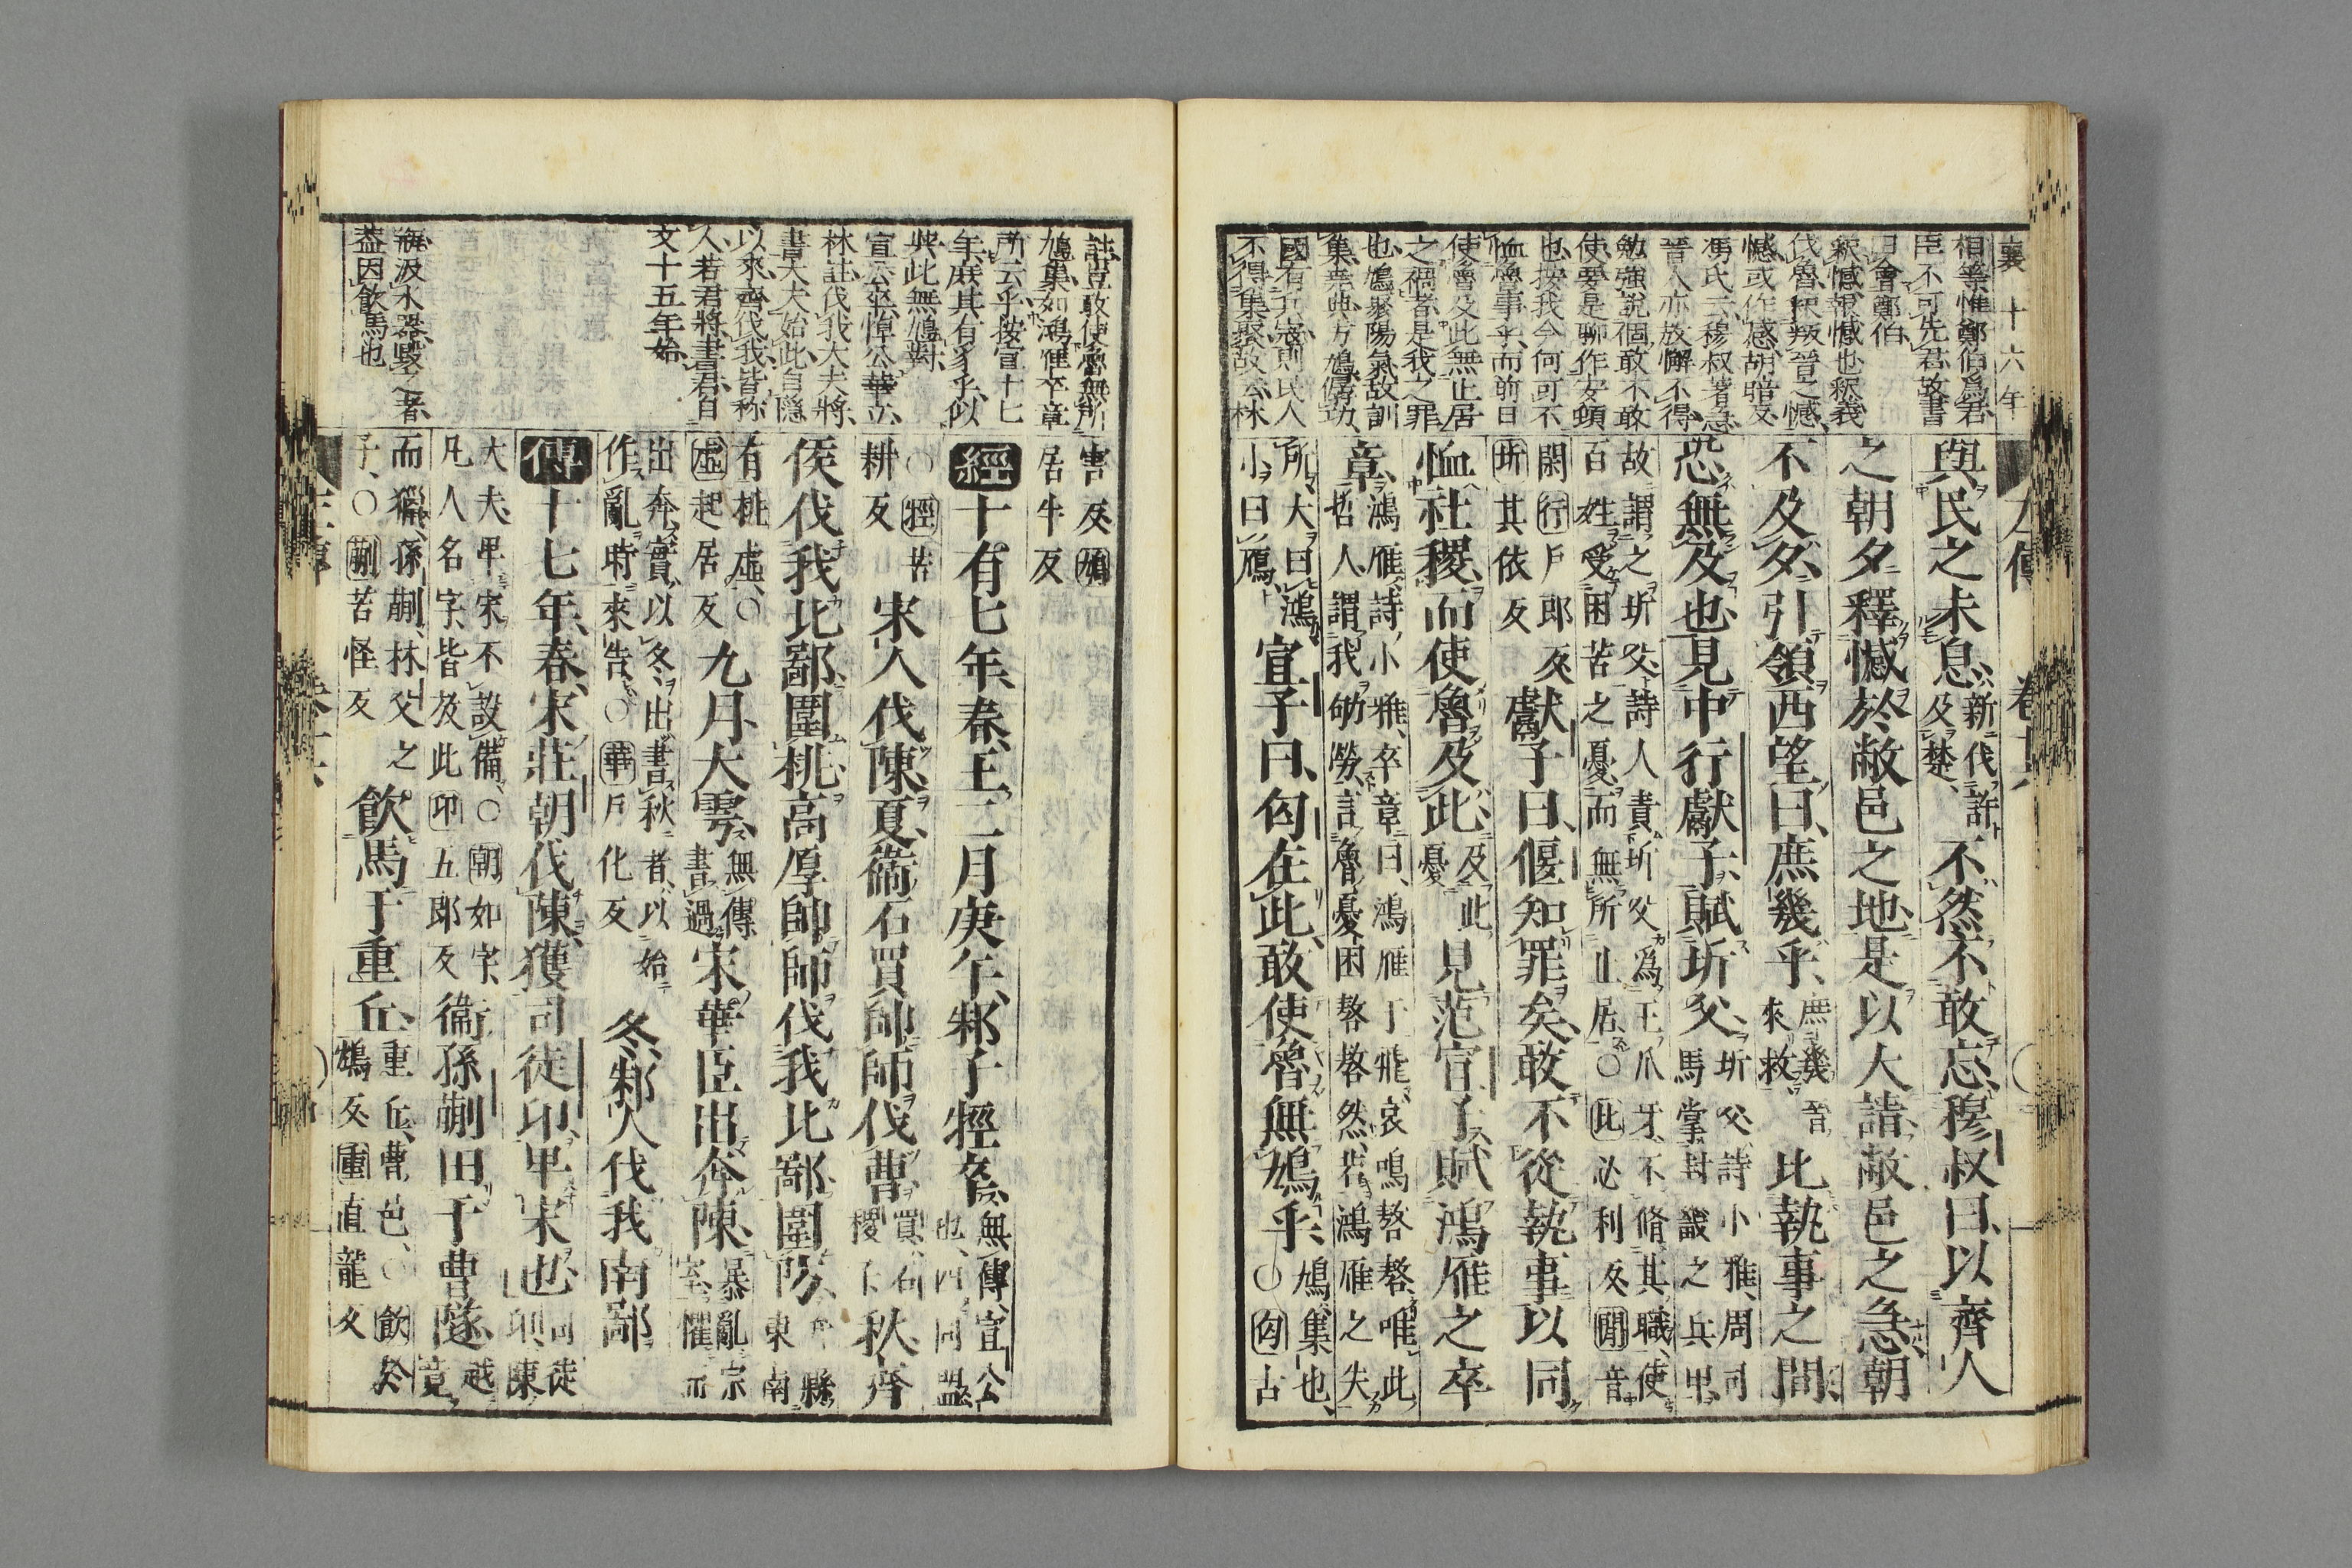 襄十六年
相等惟鄭伯爲君
臣不可先君故書
曰會鄭伯
釈憾報憾也釈義
伐魯釈叛晉之憾
憾或作感胡暗反
馮氏云穆叔著急
晉人亦放懈不得
勉強說個敢不敢
使要是聊作安頓
也按我今何可不
恤魯事乎而前日
使魯及此無止居
之禍者是我之罪
也鳩聚陽氣故訓
集堯典方鳩僝功
國有兵寇則民人
不得集聚故云林
左傳 卷十六
與民之未息新伐許及楚不然不敢忘穆叔曰以齊人
之朝夕釋憾於敝邑之地是以大請敝邑之急朝
不及夕引領西望曰庶幾乎庶幾晉來救比執事之間
恐無及也見中行獻子賦圻父圻父詩小雅周司馬掌封畿之兵甲
故謂之圻父詩人責圻父爲王爪牙不脩其職使
百姓受困苦之憂而無所止居○比必利反閒音
閑行戶郎反圻其依反獻子曰偃知罪矣敢不從執事以同
恤社稷而使魯及此及此憂見范宣子賦鴻雁之卒
章鴻雁詩小雅卒章曰鴻雁于飛哀鳴嗸嗸唯此
哲人謂我劬勞言魯憂困嗸嗸然若鴻雁之失
所大曰鴻小曰鴈宣子曰匄在此敢使魯無鳩乎鳩集也○匄古
註豈敢使魯無所
鳩集如鴻雁卒章
所云乎按宣十七
年庶其有豸乎似
與此無鳩對
宣公卒悼公華立
林註伐我大夫將
書大夫始此自隱
以來齊伐我皆称
人若君將書君自
文十五年始
缾汲水器毀之者
蓋因飲馬也
害反鳩居牛反
經十有七年春王二月庚午邾子牼卒無傳宣公也四同盟
○牼苦耕反宋人伐陳夏衞石買帥師伐曹買石稷子秋齊
侯伐我北鄙圍桃高厚帥師伐我北鄙圍防弁縣東南
有桃虛○虛起居反九月大雩無傳書過宋華臣出奔陳暴亂宗室懼而
出奔實以冬出書秋者以始作亂時來告○華戶化反冬邾人伐我南鄙
傳十七年春宋莊朝伐陳獲司徒卬卑宋也司徒卬陳
大夫卑宋不設備○朝如字凡人名字皆放此卬五郎反衞孫蒯田于曹隧越竟
而獵孫蒯林父之子○蒯苦怪反飲馬于重丘重丘曹邑○飲於鴆反重直龍反
左傳 卷十六